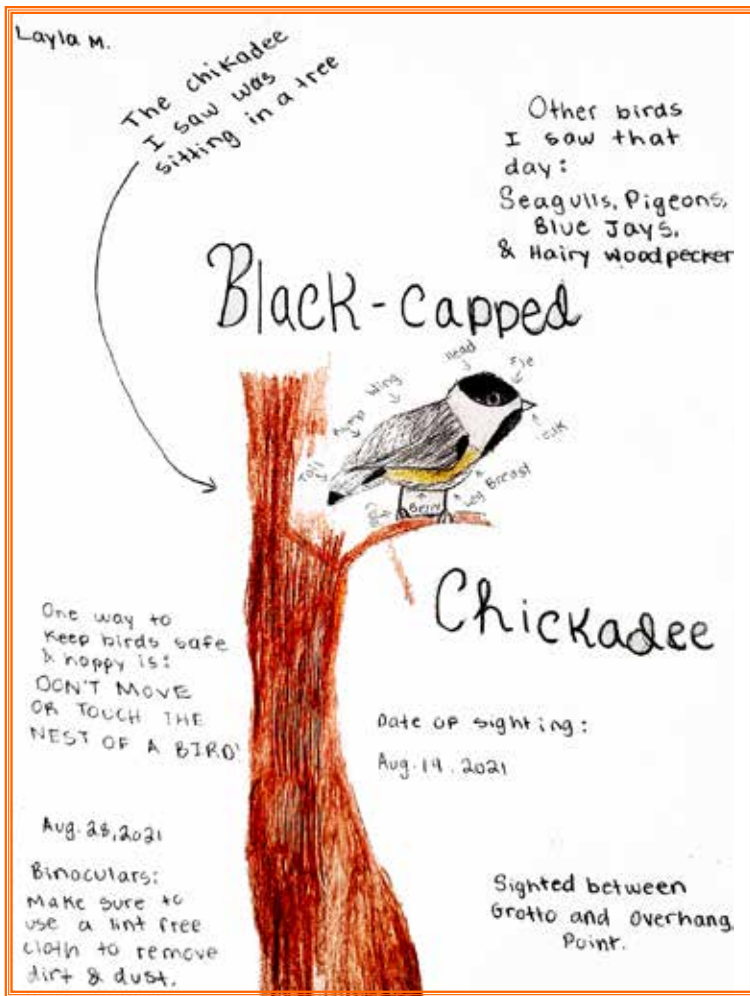 Layla M.
The chikadee
I saw was
sitting in a tree
Other birds
I saw that
day:
Seagulls, Pigeons,
Blue Jays,
& Hairy Woodpecker
Black-capped
Head
Eye
Wing
Tail
Breast
Leg
Belly
Chickadee
One way to
keep birds safe
& happy is:
DON'T MOVE
OR TOUCH THE
NEST OF A BIRD!
Date of sighting:
Aug. 19. 2021
Aug. 28, 2021
Binoculars:
Make sure to
use a lint free
cloth to remove
dirt & dust.
Sighted between
Grotto and Overhang
Point.